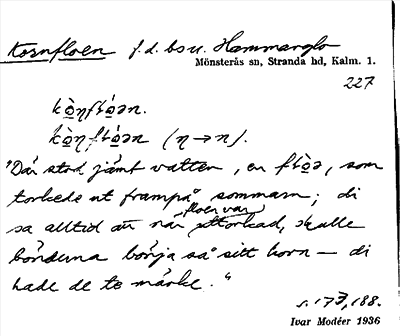 Kornfloen f.d. bs u. Hammarglo
Mönsterås sn, Stranda hd, Kalm. 1.
227
kò̱ŋflóən.
kò̱ŋflóən (ŋ→n).
"Där stod jämt vatten, en flòə, som
torkade ut frampå sommarn; di
sa alltid att när floen var uttorkad, skulle
bönderna börja så sitt korn – di
hade de te märke."
s. 173, 188.
Ivar Modéer 1936